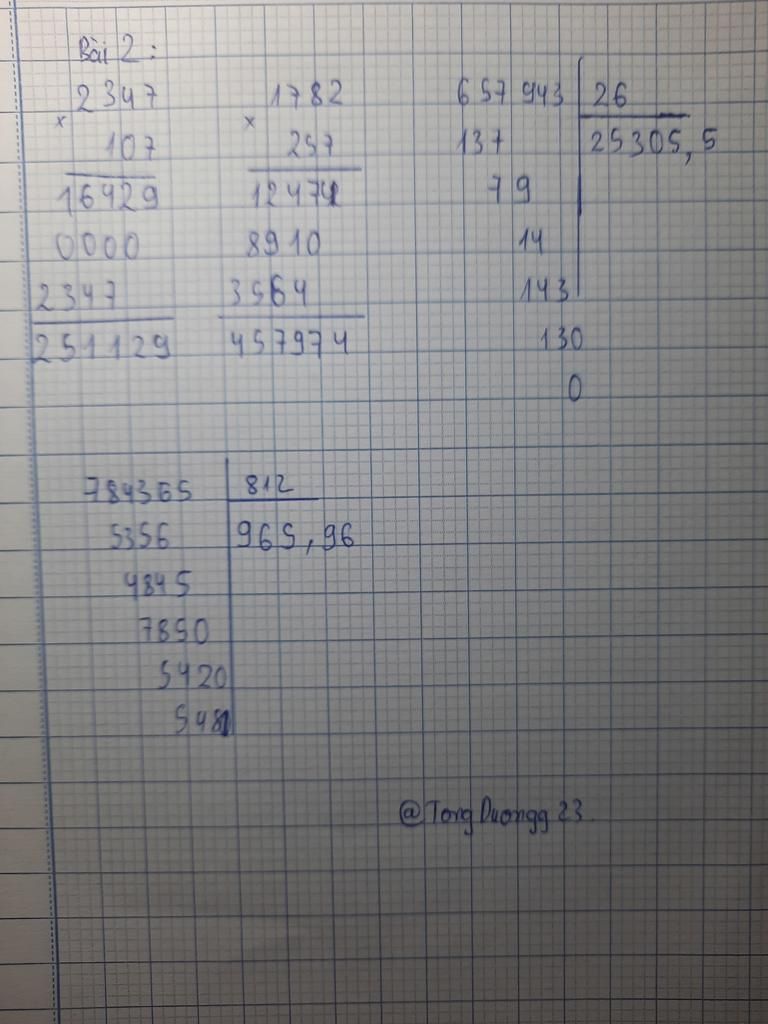 Bài 2 :
2347
x
107
16429
0000
2347
251129
1782
x
257
12474
8910
3564
457974
657943 26
137 25305,5
79
14
143
130
0
784365 812
5356 965,96
4845
7850
5420
548
@TongDuongg23